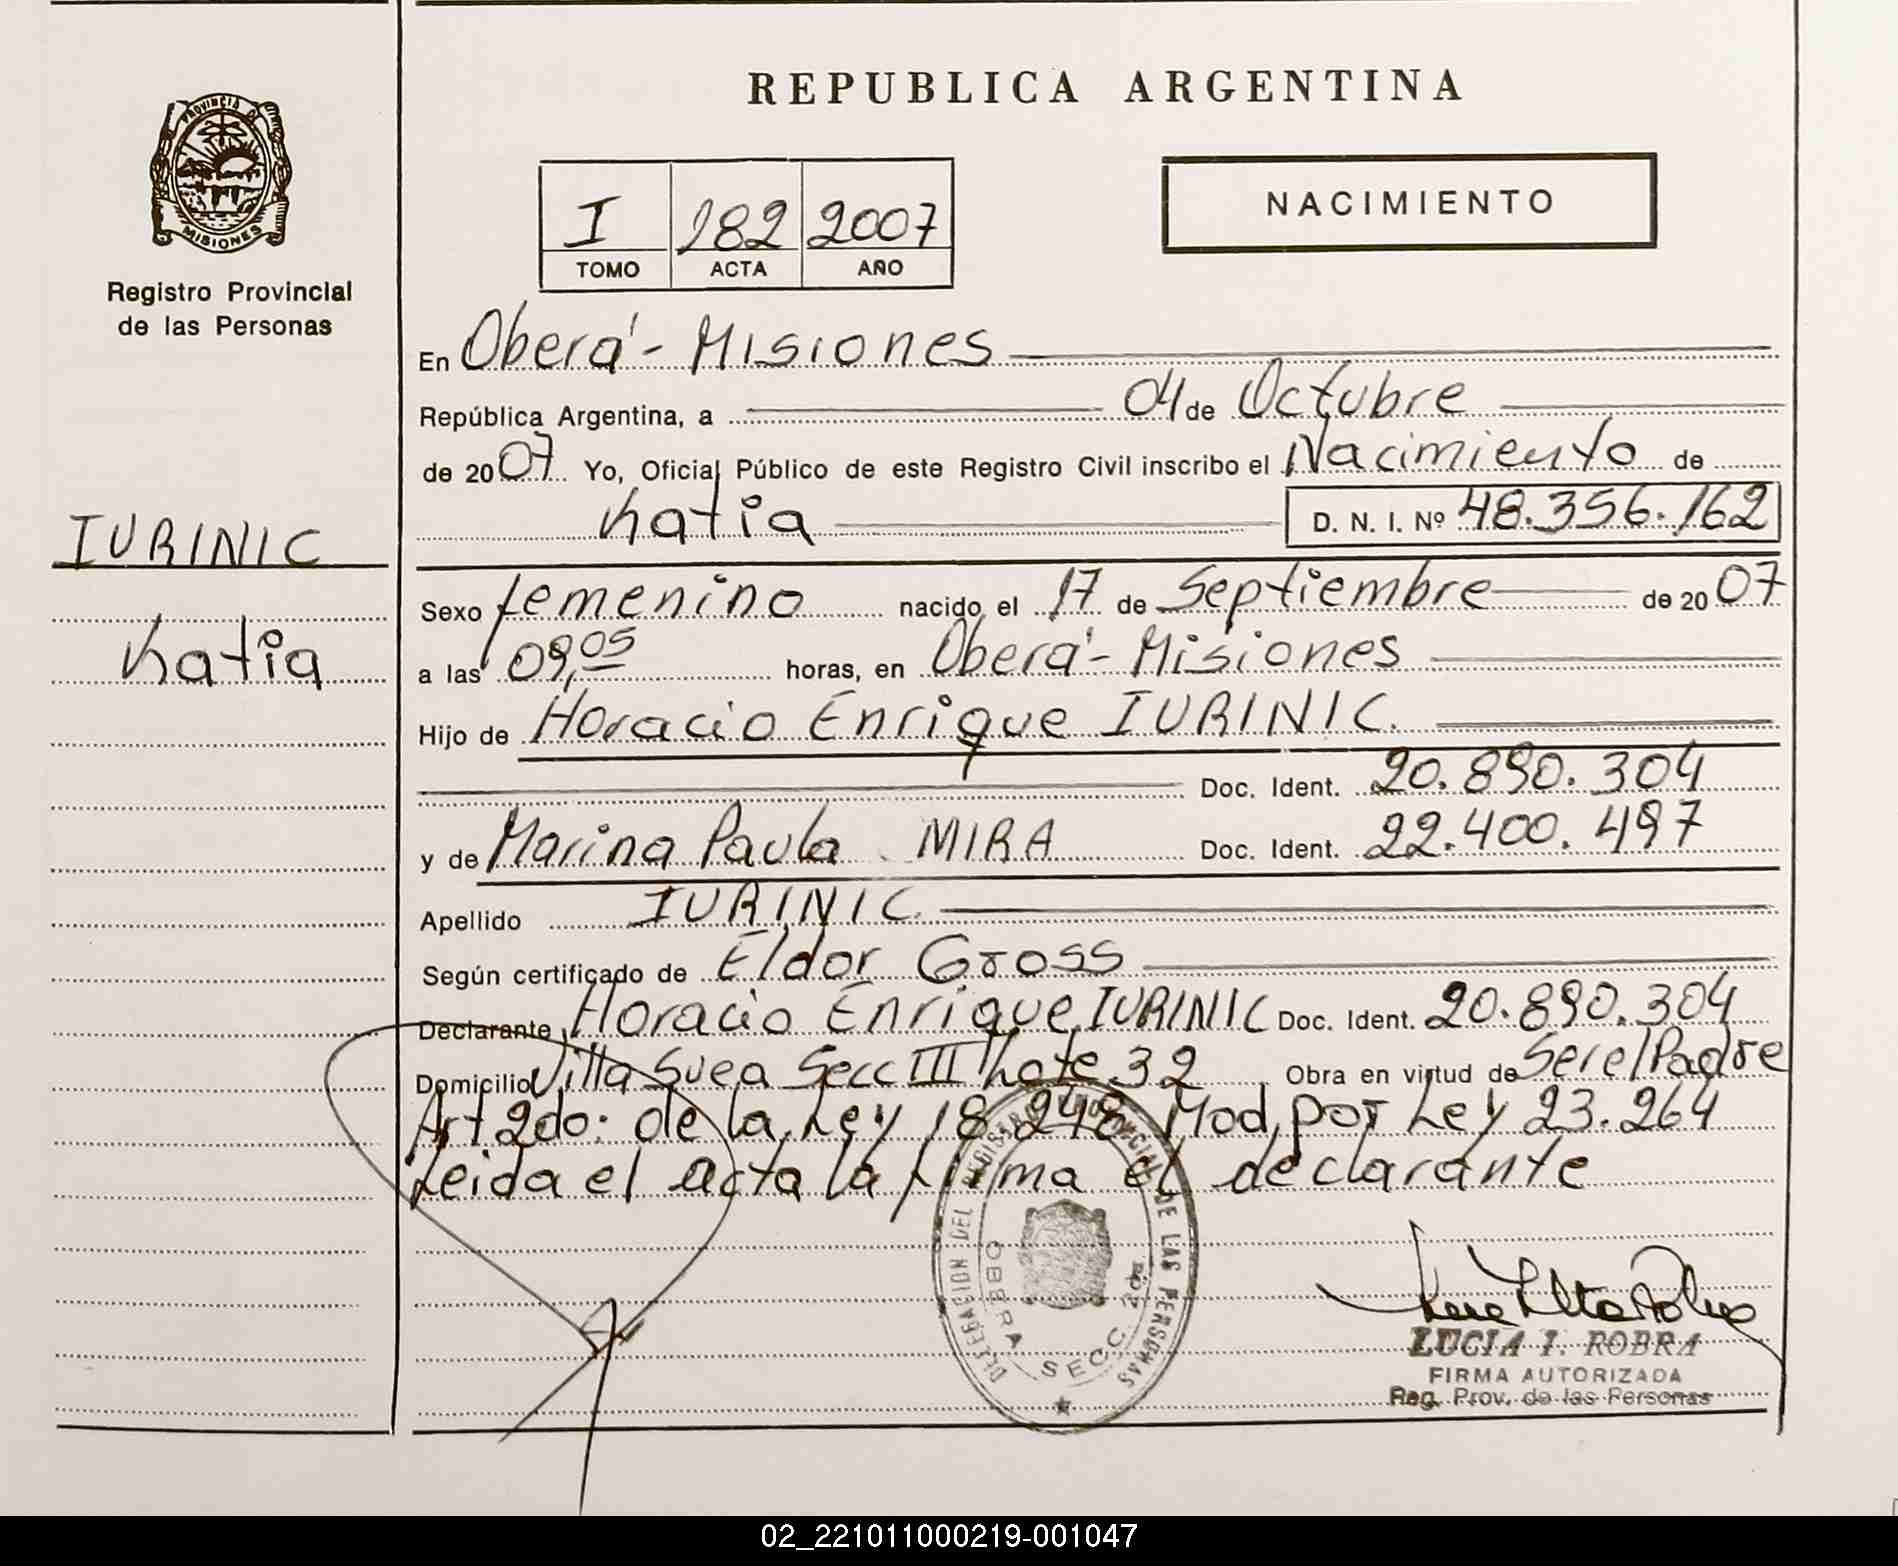 REPUBLICA ARGENTINA
PROVINCIA DE
MISIONES
Registro Provincial
de las Personas
I 282 2007
TOMO ACTA AÑO
NACIMIENTO
En Oberá - Misiones
República Argentina, a 04 de Octubre
de 2007 Yo, Oficial Público de este Registro Civil inscribo el Nacimiento de
Katia D. N. I. Nº 48.356.162
IURINIC
Katia
Sexo femenino nacido el 17 de Septiembre de 2007
a las 09,05 horas, en Oberá - Misiones
Hijo de Horacio Enrique IURINIC.
Doc. Ident. 20.890.304
y de Marina Paula MIRA Doc. Ident. 22.400.497
Apellido IURINIC
Según certificado de Eldor Gross
Declarante Horacio Enrique IURINIC Doc. Ident. 20.890.304
Domicilio Villa Svea Secc III Lote 32 Obra en virtud de Ser el Padre
Art 2do: de la Ley 18.248 Mod. por Ley 23.264
Leida el acta la firma el declarante
DELEGACION DEL REGISTRO PROVINCIAL DE LAS PERSONAS
SECC. 2da
LUCIA I. ROBRA
FIRMA AUTORIZADA
Reg. Prov. de las Personas
02_221011000219-001047